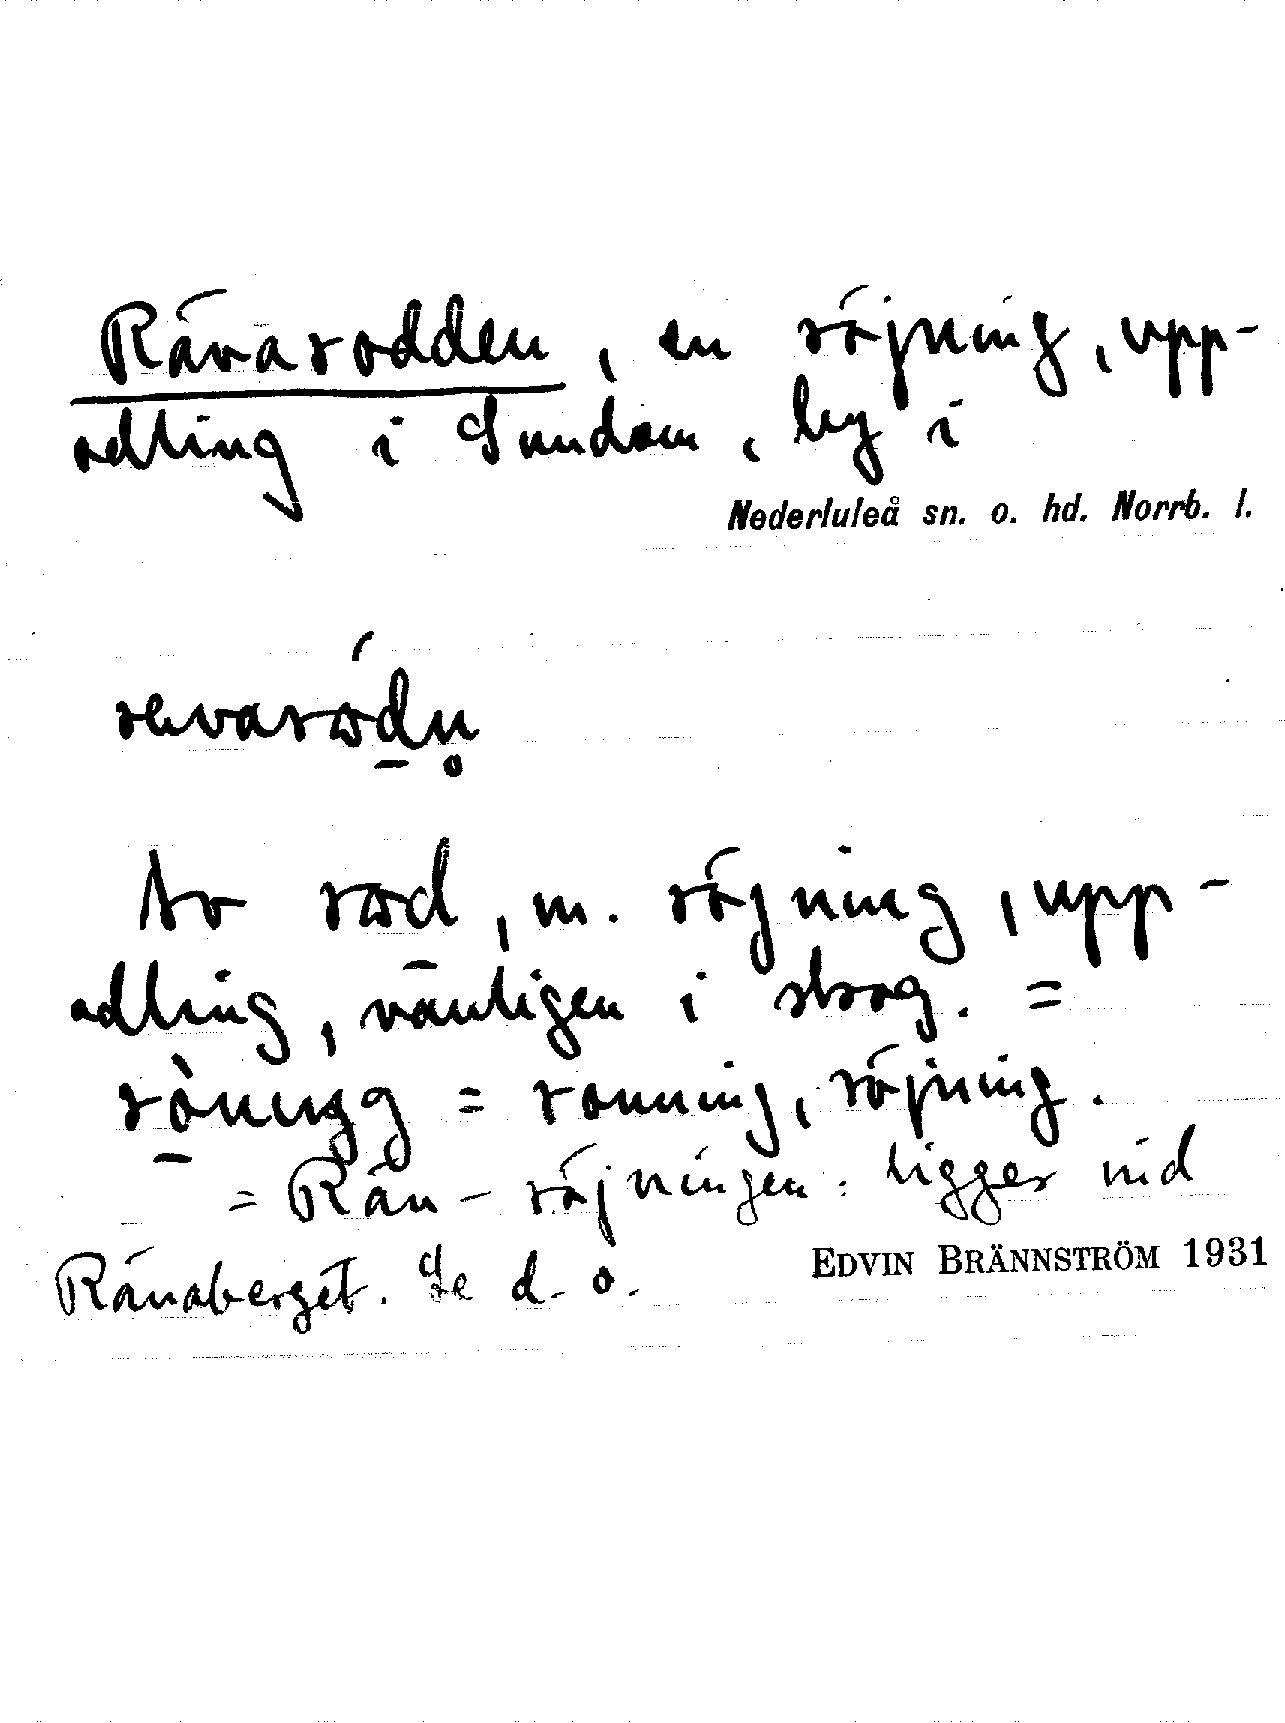 Rävarodden, en röjning, upp-
odling i Sundom, by i
Nederluleå sn. o. hd. Norrb. l.
Av rωd, m. röjning, upp-
odling, vanligen i skog. =
= ronning, röjning.
= Räv-röjningen: ligger vid
Rävaberget. Se d. o.
EDVIN BRÄNNSTRÖM 1931